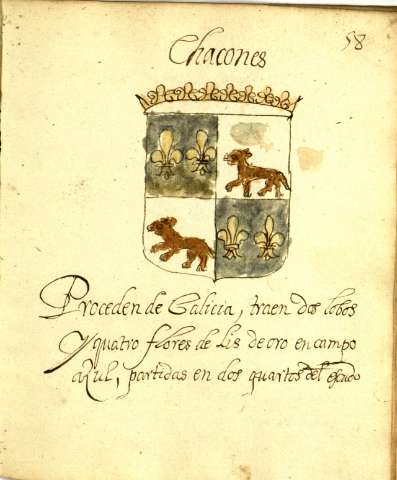 58
Chacones
Proceden de Galicia, traen dos lobos
y quatro flores de Lis de oro en campo
azul, partidas en dos quartos del escudo